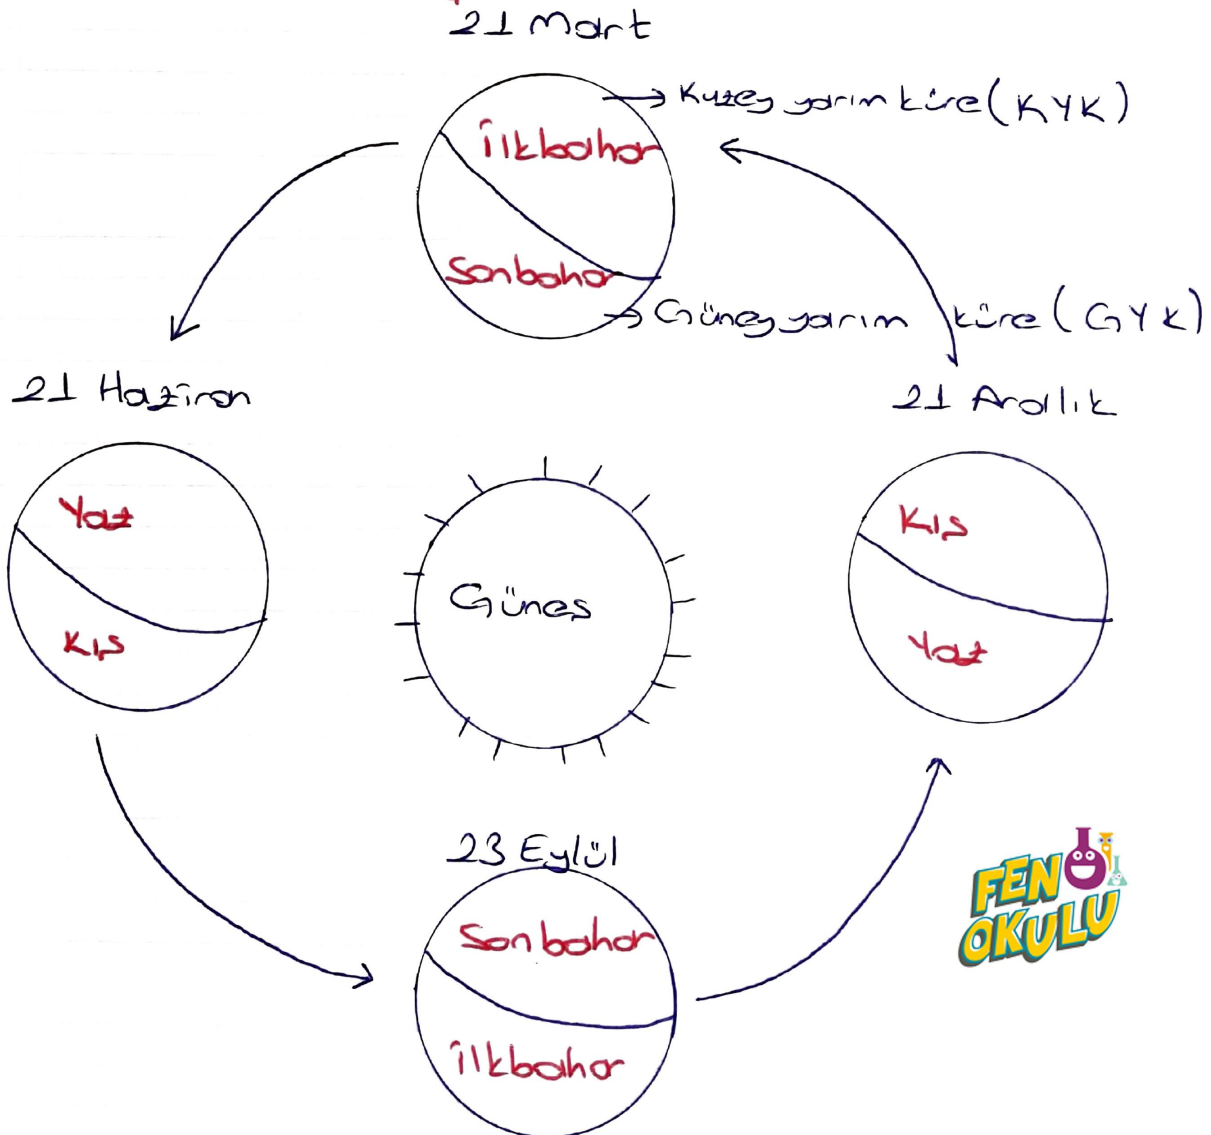 21 Mart
Kuzey yarım küre (KYK)
İlkbahar
Sonbahar
Güney yarım küre (GYK)
21 Haziran
21 Aralık
Yaz
Kış
Güneş
Kış
Yaz
23 Eylül
Sonbahar
İlkbahar
FEN
OKULU